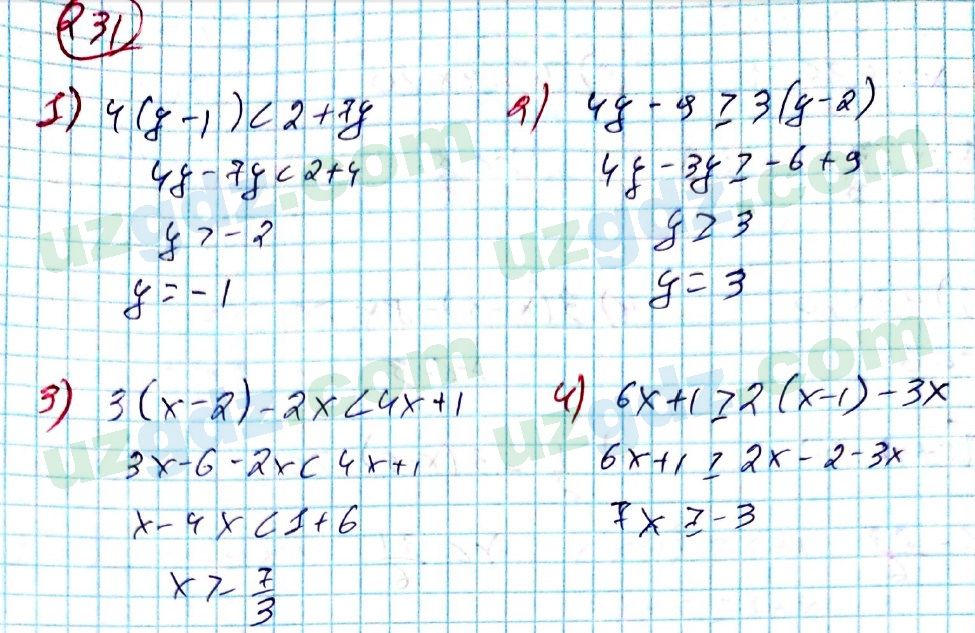 231
1) 4(y-1)<2+7y
4y-7y<2+4
y>-2
y=-1
2) 4y-9≥3(y-2)
4y-3y≥-6+9
y≥3
y=3
3) 3(x-2)-2x<4x+1
3x-6-2x<4x+1
x-4x<1+6
x>-7/3
4) 6x+1≥2(x-1)-3x
6x+1≥2x-2-3x
7x≥-3
uzgdz.com
uzgdz.com
uzgdz.com
uzgdz.com